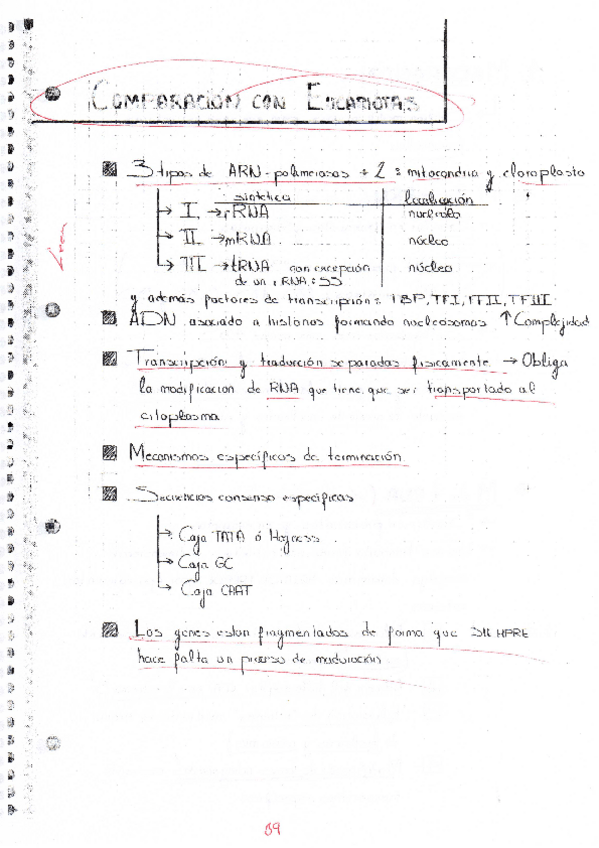 COMPARACION CON EUCARIOTAS
3 tipos de ARN-polimerasas + 2 : mitocondria y cloroplasto
sintetica localización
I → rRNA nucleolo
II → mRNA núcleo
III → tRNA con excepción núcleo
de un rRNA: 5S
y además factores de transcripción: TBP, TFI, TFII, TFIII
ADN asociado a histonas formando nucleosomas ↑ Complejidad
Transcripción y traducción separadas físicamente → Obliga
la modificacion de RNA que tiene que ser transportado al
citoplasma
Mecanismos específicos de terminación
Secuencias consenso especificas
Caja TATA ó Hogness
Caja GC
Caja CAAT
Los genes estan fragmentados de forma que SIEMPRE
hace falta un proceso de maduración
89